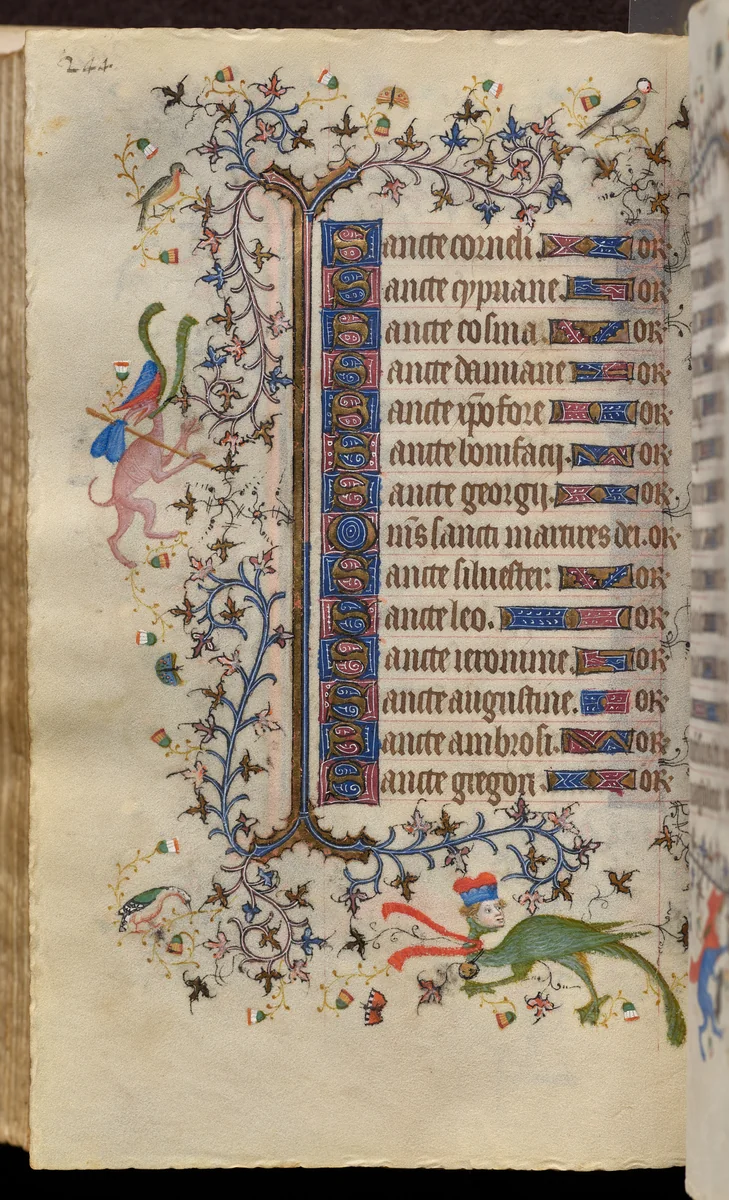 244
Sancte corneli. OR.
Sancte cypriane. OR.
Sancte cosma. OR.
Sancte damiane OR.
Sancte xp̄ofore OR.
Sancte bonifacij. OR.
Sancte georgij. OR.
Om̄s sancti martires dei. OR.
Sancte siluester. OR.
Sancte leo. OR.
Sancte ieronime. OR.
Sancte augustine. OR.
Sancte ambrosi. OR.
Sancte gregori. OR.